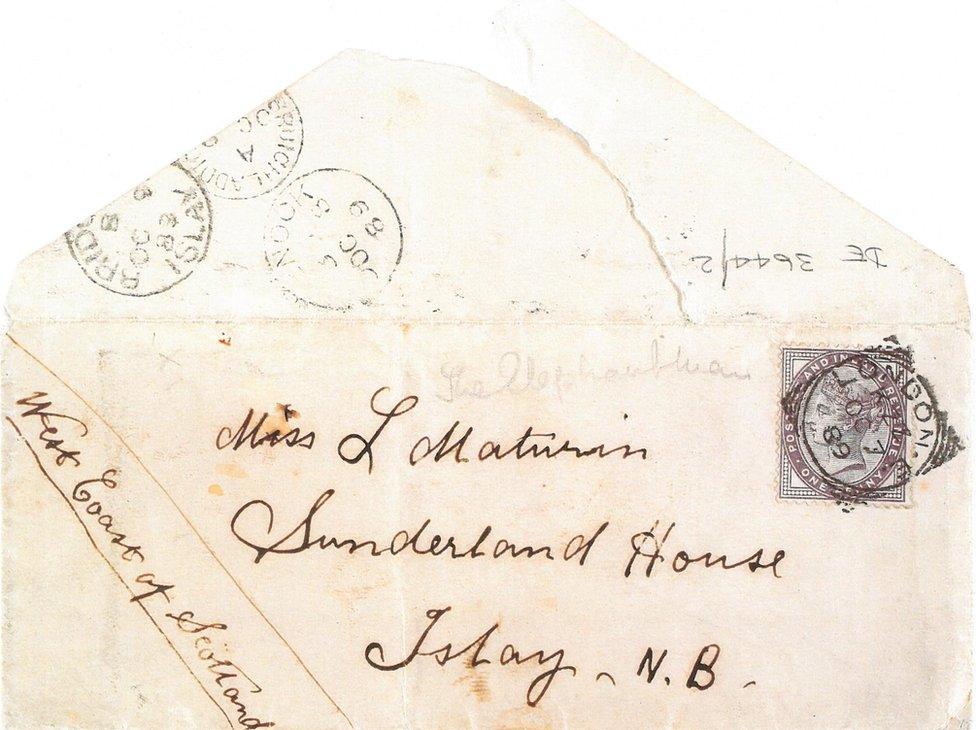 BRUICHLADDICH
A
OC
BRID
8
OC
89
ISLAY
NOCK
8
OC
89
DE 3644/2
The Elephant Man
Miss L Maturin
Sunderland House
Islay - N.B.
West Coast of Scotland
POSTAGE AND INLAND REVENUE
ONE PENNY
LONDON
OC 7
89